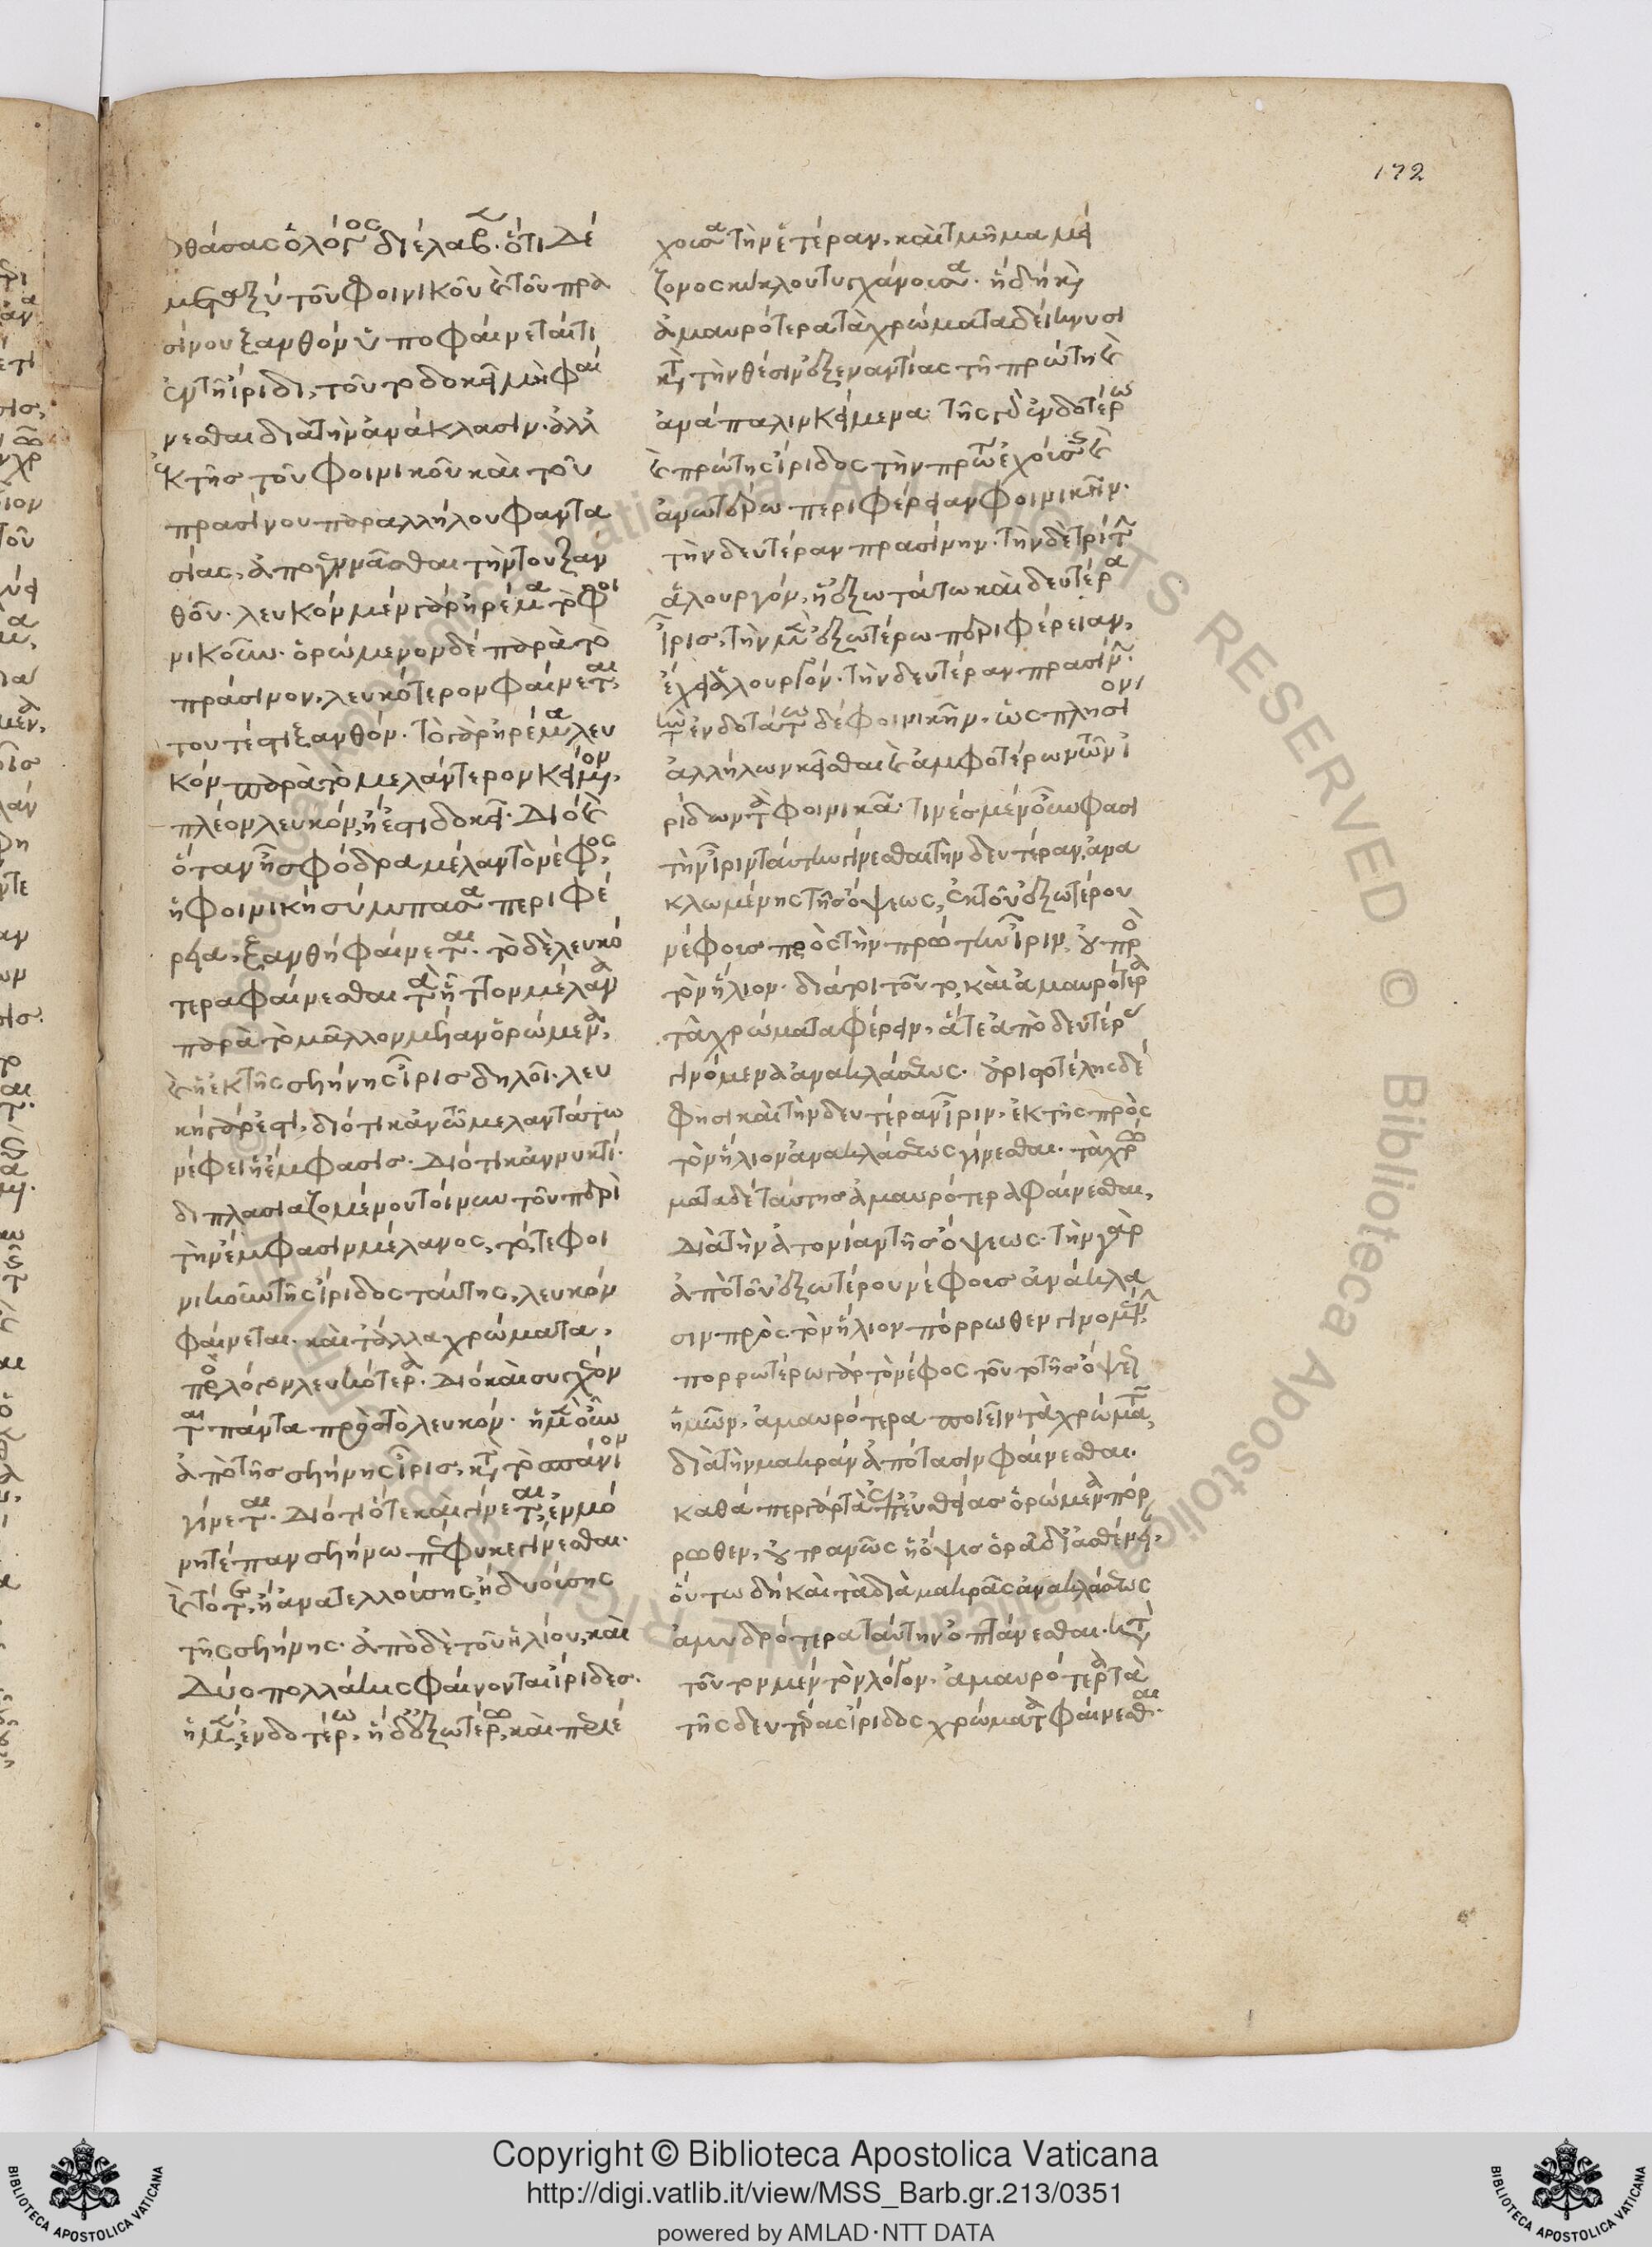 172
φθάσας ὁ λόγος διέλαβ. ὅτι δὲ
μεταξὺ τοῦ φοινικοῦ καὶ τοῦ πρα
σίνου ξανθὸν ὑποφαίνεταί τι
ἐν τῇ ἴριδι, τοῦτο δοκεῖ μὴ φαί
νεσθαι διὰ τὴν ἀνάκλασιν. ἀλλ
ἐκ τῆς τοῦ φοινικοῦ καὶ τοῦ
πρασίνου παραλλήλου φαντα
σίας, ἀπογεννᾶσθαι τὴν τοῦ ξαν
θοῦ. λευκὸν μὲν γὰρ ἠρέμα τὸ φοι
νικοῦν. ὁρώμενον δὲ παρὰ τὸ
πράσινον, λευκότερον φαίνεται,
τουτέστι ξανθόν. τὸ γὰρ ἠρέμα λευ
κὸν παρὰ τὸ μελάντερον κείμενον,
πλέον λευκόν, ἢ ἐστι δοκεῖ. διὸ καὶ
ὅταν ᾖ σφόδρα μέλαν τὸ νέφος,
ἡ φοινικῆ σύμπασα περιφέ
ρεια, ξανθὴ φαίνεται. τὸ δὲ λευκό
τερα φαίνεσθαι τὰ ἧττον μέλανα
παρὰ τὸ μᾶλλον μέλαν ὁρώμενα,
καὶ ἡ ἐκ τῆς σελήνης ἶρις δηλοῖ. λευ
κὴ γάρ ἐστι, διότι κἀν τῷ μελαντάτῳ
νέφει ἡ ἔμφασις. διότι κἀν νυκτί.
διπλασιαζομένου τοίνυν τοῦ περὶ
τὴν ἔμφασιν μέλανος, τό, τε φοι
νικοῦν τῆς ἴριδος ταύτης, λευκὸν
φαίνεται. καὶ τἄλλα χρώματα,
πρὸς λόγον λευκότερα. διὸ καὶ συγχέον
ται πάντα πρὸς τὸ λευκόν. ἡ μὲν οὖν
ἀπὸ τῆς σελήνης ἶρις, κατὰ τὸ σπάνιον
γίνεται. διότι ὅτε καὶ γίνεται, ἐν μό
νῃ τε πανσελήνῳ πέφυκε γίνεσθαι.
καὶ τότε, ἢ ἀνατελλούσης, ἢ δυούσης
τῆς σελήνης. ἀπὸ δὲ τοῦ ἡλίου, καὶ
δύο πολλάκις φαίνονται ἴριδες.
ἡ μὲν, ἐνδοτέρω, ἡ δ' ἐξωτέρω, καὶ περιέ
χουσα τὴν ἑτέραν, καὶ τμῆμα μεί
ζονος κύκλου τυγχάνουσα. ἤδη καὶ
ἀμαυρότερα τὰ χρώματα δείκνυσι
κατὰ τὴν θέσιν ἐξεναντίας τῇ πρώτῃ καὶ
ἀνάπαλιν κείμενα. τῆς γὰρ ἐνδοτέρω
καὶ πρώτης ἴριδος τὴν πρώτην ἐχούσης καὶ
ἀνωτάτω περιφέρειαν φοινικῆν.
τὴν δευτέραν πρασίνην. τὴν δὲ τρίτην
ἁλουργόν, ἡ ἐξωτάτω καὶ δευτέρα
ἶρις, τὴν μὲν ἐξωτέρω περιφέρειαν,
ἔχει ἁλουργόν. τὴν δευτέραν πρασίνην.
τὴν ἐνδοτάτω δὲ φοινικῆν. ὡς πλησίον
ἀλλήλων κεῖσθαι καὶ ἀμφοτέρων τῶν ἰ
ρίδων τὰ φοινικᾶ. τινὲς μὲν οὖν φασι
τὴν ἶριν ταύτην γίνεσθαι τὴν δευτέραν, ἀνα
κλωμένης τῆς ὄψεως, ἐκ τοῦ ἐξωτέρου
νέφους πρὸς τὴν πρώτην ἶριν, οὐ πρὸς
τὸν ἥλιον. διάτοι τοῦτο, καὶ ἀμαυρότερα
τὰ χρώματα φέρειν, ἅτε ἀπὸ δευτέρας
γινόμενα ἀνακλάσεως. ἀριστοτέλης δέ
φησι καὶ τὴν δευτέραν ἶριν, ἐκ τῆς πρὸς
τὸν ἥλιον ἀνακλάσεως γίνεσθαι. τὰ χρώ
ματα δὲ ταύτης ἀμαυρότερα φαίνεσθαι,
διὰ τὴν ἀτονίαν τῆς ὄψεως. τὴν γὰρ
ἀπὸ τοῦ ἐξωτέρου νέφους ἀνάκλα
σιν πρὸς τὸν ἥλιον πόρρωθεν γινομένην,
πορρωτέρω γὰρ τὸ νέφος τοῦτο τῆς ὄψεως
ἡμῶν, ἀμαυρότερα ποιεῖν τὰ χρώματα,
διὰ τὴν μακρὰν ἀπότασιν φαίνεσθαι.
καθάπερ γὰρ τὰ ἐπευθείας ὁρώμενα πόρ
ρωθεν, οὐ τρανῶς ἡ ὄψις ὁρᾷ δι' ἀσθένειαν,
οὕτω δὴ καὶ τὰ διὰ μακρᾶς ἀνακλάσεως
ἀμυδρότερα ταύτην ὀπτάνεσθαι. κατὰ
τοῦτον μὲν τὸν λόγον, ἀμαυρότερα τὰ
τῆς δευτέρας ἴριδος χρώματα φαίνεσθαι.
Copyright © Biblioteca Apostolica Vaticana
http://digi.vatlib.it/view/MSS_Barb.gr.213/0351
powered by AMLAD·NTT DATA